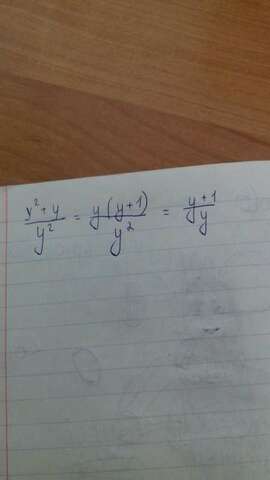 \frac{x^2+y}{y^2} = \frac{y(y+1)}{y^2} = \frac{y+1}{y}